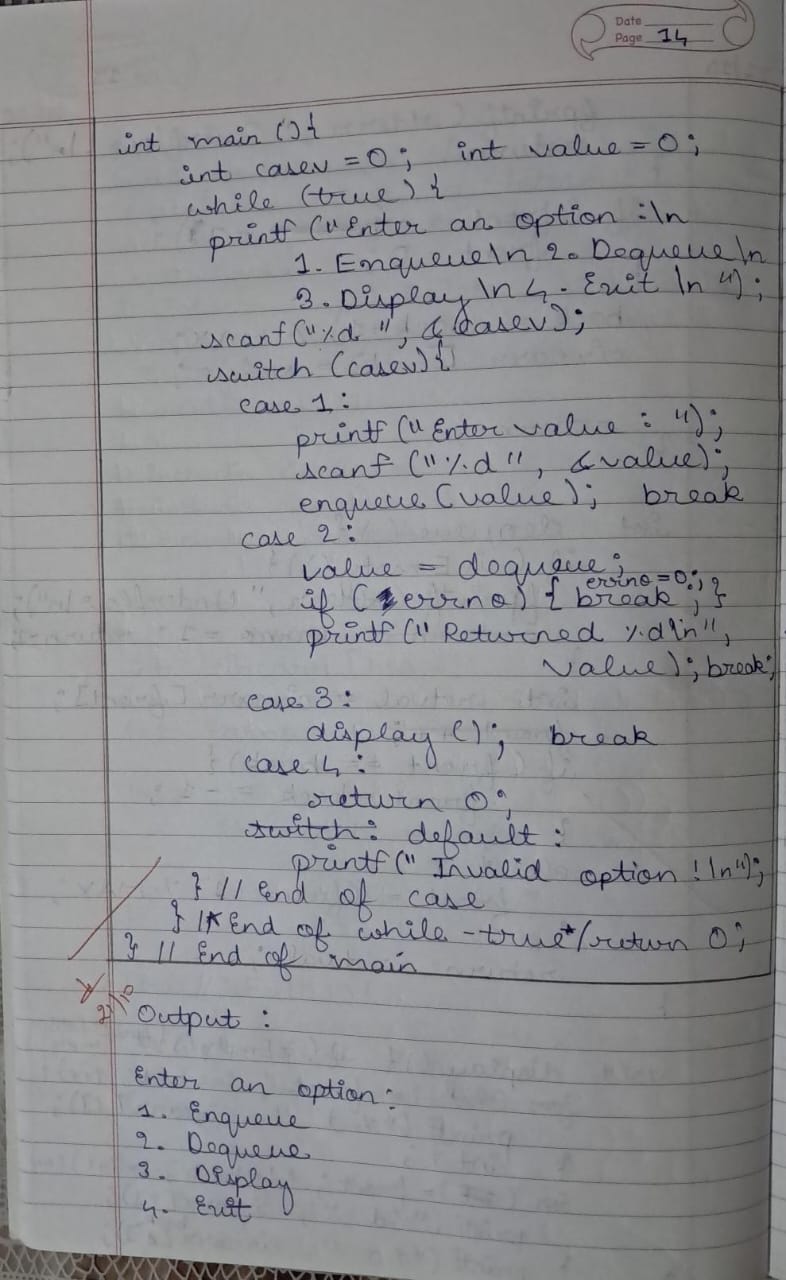 Date
Page 14
int main () {
int casev = 0; int value = 0;
while (true) {
printf ("Enter an option :\n
1. Enqueue\n 2. Dequeue\n
3. Display \n 4. Exit \n");
scanf("%d ", &casev);
switch (casev) {
case 1:
printf ("Enter value : ");
scanf ("%d", &value);
enqueue (value); break
case 2:
value = dequeue;
if (errno) { errno = 0; break; }
printf (" Returned %d\n",
value); break;
case 3:
display (); break
case 4:
return 0;
switch: default :
printf(" Invalid option !\n");
} // End of case
} /* End of while-true*/ return 0;
} // End of main
Output :
Enter an option:
1. Enqueue
2. Dequeue
3. Display
4. Exit